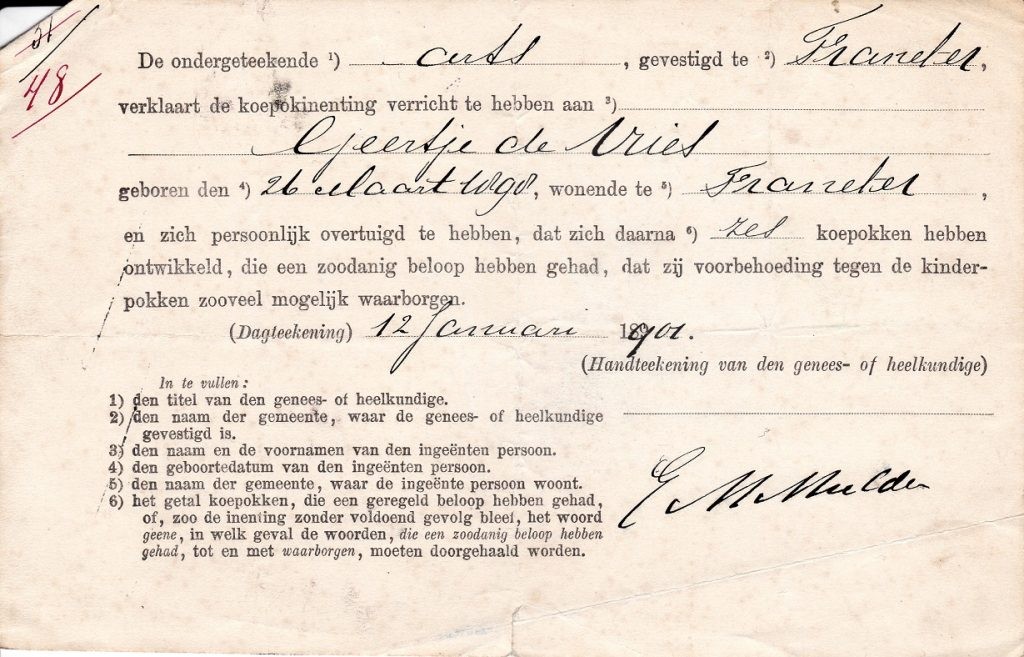 31
48
De ondergeteekende ¹) arts, gevestigd te ²) Franeker,
verklaart de koepokinenting verricht te hebben aan ³)
Geertje de Vries
geboren den ⁴) 26 Maart 1898, wonende te ⁵) Franeker,
en zich persoonlijk overtuigd te hebben, dat zich daarna ⁶) zes koepokken hebben
ontwikkeld, die een zoodanig beloop hebben gehad, dat zij voorbehoeding tegen de kinder-
pokken zooveel mogelijk waarborgen.
(Dagteekening) 12 Januari 1901.
(Handteekening van den genees- of heelkundige)
In te vullen:
1) den titel van den genees- of heelkundige.
2) den naam der gemeente, waar de genees- of heelkundige
gevestigd is.
3) den naam en de voornamen van den ingeënten persoon.
4) den geboortedatum van den ingeënten persoon.
5) den naam der gemeente, waar de ingeënte persoon woont.
6) het getal koepokken, die een geregeld beloop hebben gehad,
of, zoo de inenting zonder voldoend gevolg bleef, het woord
geene, in welk geval de woorden, die een zoodanig beloop hebben
gehad, tot en met waarborgen, moeten doorgehaald worden.
E M Mulder